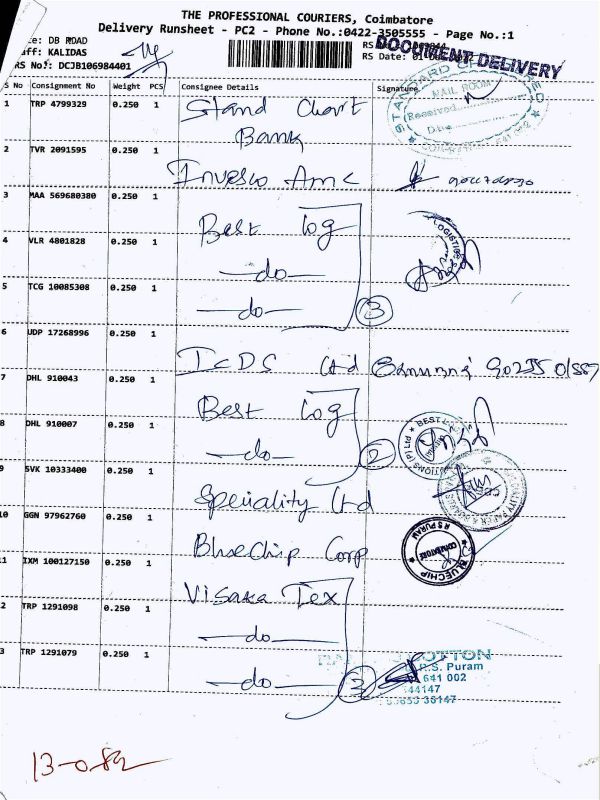 THE PROFESSIONAL COURIERS, Coimbatore
Delivery Runsheet - PC2 - Phone No.:0422-3505555 - Page No.:1
DB ROAD
DOCUMENT DELIVERY
KALIDAS
RS Date:
RS No: DCJB106984401
S No Consignment No Weight PCS Consignee Details Signature
1 TRP 4799329 0.250 1 Stand Chart Bank
MAIL ROOM
Received
Date
2 TVR 2091595 0.250 1 Invesco Amc
3 MAA 569680380 0.250 1 Best Log
4 VLR 4801828 0.250 1 —do—
5 TCG 10085308 0.250 1 —do— 3
6 UDP 17268996 0.250 1 ICDS Ltd
7 DHL 910043 0.250 1 Best Log
8 DHL 910007 0.250 1 —do— 2
9 SVK 10333400 0.250 1 Speciality Ltd
10 GGN 97962760 0.250 1 Bluechip Corp
BLUECHIP
R S PURAM
COIMBATORE
11 IXM 100127150 0.250 1 Visaka Tex
2 TRP 1291098 0.250 1 —do—
3 TRP 1291079 0.250 1 —do— 3
COTTON
R.S. Puram
641 002
44147
36147